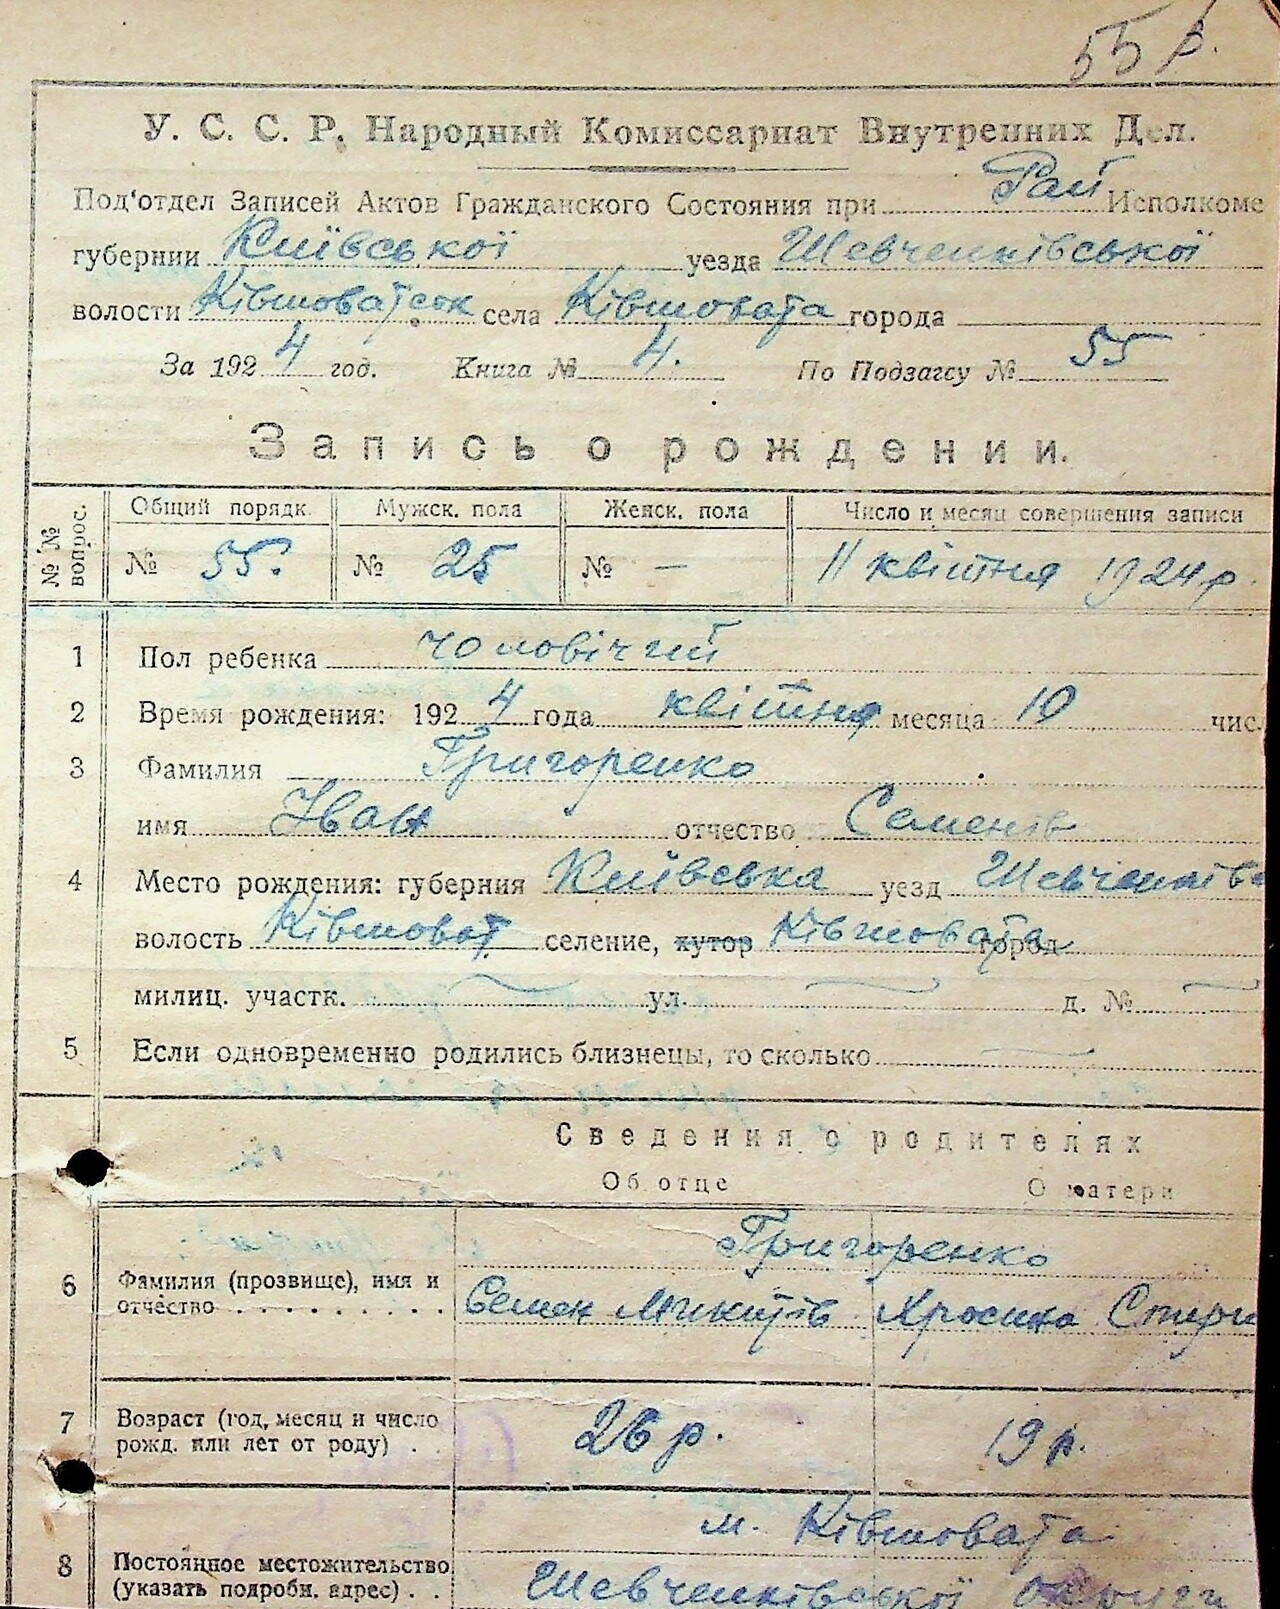 55 р.
У. С. С. Р. Народный Комиссариат Внутренних Дел.
Под‘отдел Записей Актов Гражданского Состояния при Рай Исполкоме
губернии Київської уезда Шевченківської
волости Ківшоватськ села Ківшовата города
За 1924 год. Книга № 4. По Подзагсу № 55
Запись о рождении.
№№ вопрос. Общий порядк. Мужск. пола Женск. пола Число и месяц совершения записи
№ 55. № 25 № — 11 квітня 1924 р.
1 Пол ребенка чоловічий
2 Время рождения: 1924 года квітня месяца 10 числ
3 Фамилия Григоренко
имя Іван отчество Семенів
4 Место рождения: губерния Київська уезд Шевченківс
волость Ківшоват. селение, хутор Ківшовата город
милиц. участк. ул. д. №
5 Если одновременно родились близнецы, то сколько
Сведения о родителях
Об отце О матери
Григоренко
6 Фамилия (прозвище), имя и
отчество Семен Микитів Хросина
7 Возраст (год, месяц и число
рожд. или лет от роду) 26 р. 19 р.
м. Ківшовата
8 Постоянное местожительство
(указать подробн. адрес) Шевченківської округи